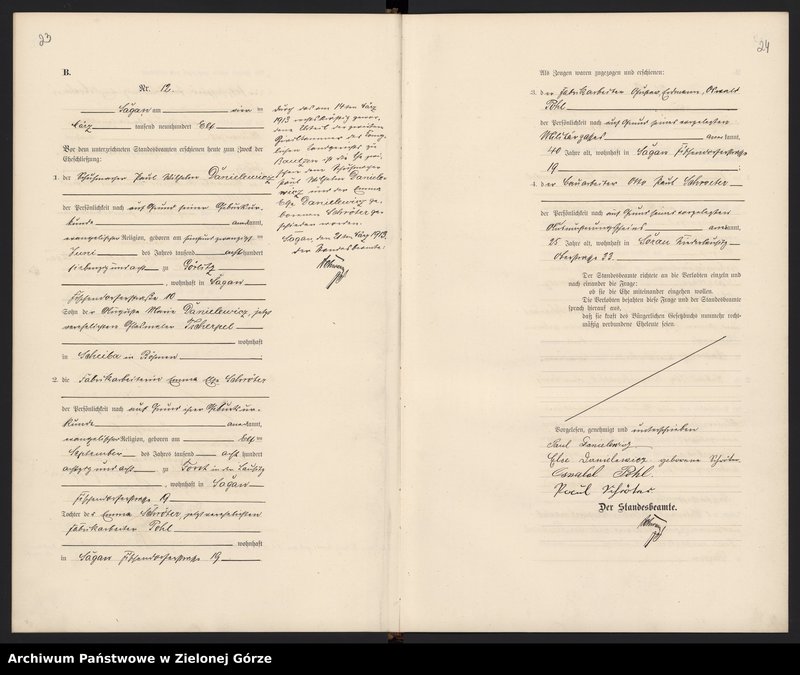 23
B.
Nr. 12.
Sagan am vier ten
März tausend neunhundert Elf
Vor dem unterzeichneten Standesbeamten erschienen heute zum Zweck der
Eheschließung:
1. der Schuhmacher Paul Wilhelm Danielewicz
der Persönlichkeit nach auf Grund seiner Geburtsur-
kunde anerkannt,
evangelischer Religion, geboren am fünfundzwanzigsten
Juni des Jahres tausend achthundert
siebenzig und acht zu Görlitz
, wohnhaft in Sagan
Fischendorferstraße 10
Sohn der Auguste Marie Danielewicz, jetzt
verehelichten Glasmaler Tscherpel
wohnhaft
in Scheiba in Böhmen
2. die Fabrikarbeiterin Emma Else Schröter
der Persönlichkeit nach auf Grund ihrer Geburtsur-
kunde anerkannt,
evangelischer Religion, geboren am Elften
September des Jahres tausend acht hundert
achtzig und acht zu in der Lausitz
, wohnhaft in Sagan
Fischendorferstraße 19
Tochter der Emma Schröter, jetzt verehelichten
Fabrikarbeiter Pohl
wohnhaft
in Sagan Fischendorferstraße 19
Durch das am 14ten März
1913 rechtskräftig gewor-
dene Urteil der zweiten
Zivilkammer des König-
lichen Landgerichts zu
Bautzen ist die Ehe zwi-
schen dem Schuhmacher
Paul Wilhelm Daniele-
wicz und der Emma
Else Danielewicz ge-
borenen Schröter ge-
schieden worden.
Sagan, den 21ten März 1913.
Der Standesbeamte:
24
Als Zeugen waren zugezogen und erschienen:
3. der Fabrikarbeiter Gustav, Erdmann, Oswald
Pohl
der Persönlichkeit nach auf Grund seines vorgelegten
Militärpasses anerkannt,
40 Jahre alt, wohnhaft in Sagan Fischendorferstraße
19
4. der Bauarbeiter Otto Paul Schroeter
der Persönlichkeit nach auf Grund seines vorgelegten
Ausmusterungsscheins anerkannt,
25 Jahre alt, wohnhaft in Sorau Niederlausitz
Oberstraße 33
Der Standesbeamte richtete an die Verlobten einzeln und
nach einander die Frage:
ob sie die Ehe miteinander eingehen wollen.
Die Verlobten bejahten diese Frage und der Standesbeamte
sprach hierauf aus,
daß sie kraft des Bürgerlichen Gesetzbuchs nunmehr recht-
mäßig verbundene Eheleute seien.
Vorgelesen, genehmigt und unterschrieben
Paul Danielewicz
Else Danielewicz geborene Schröter
Oswald Pohl.
Paul Schröter
Der Standesbeamte.
Archiwum Państwowe w Zielonej Górze